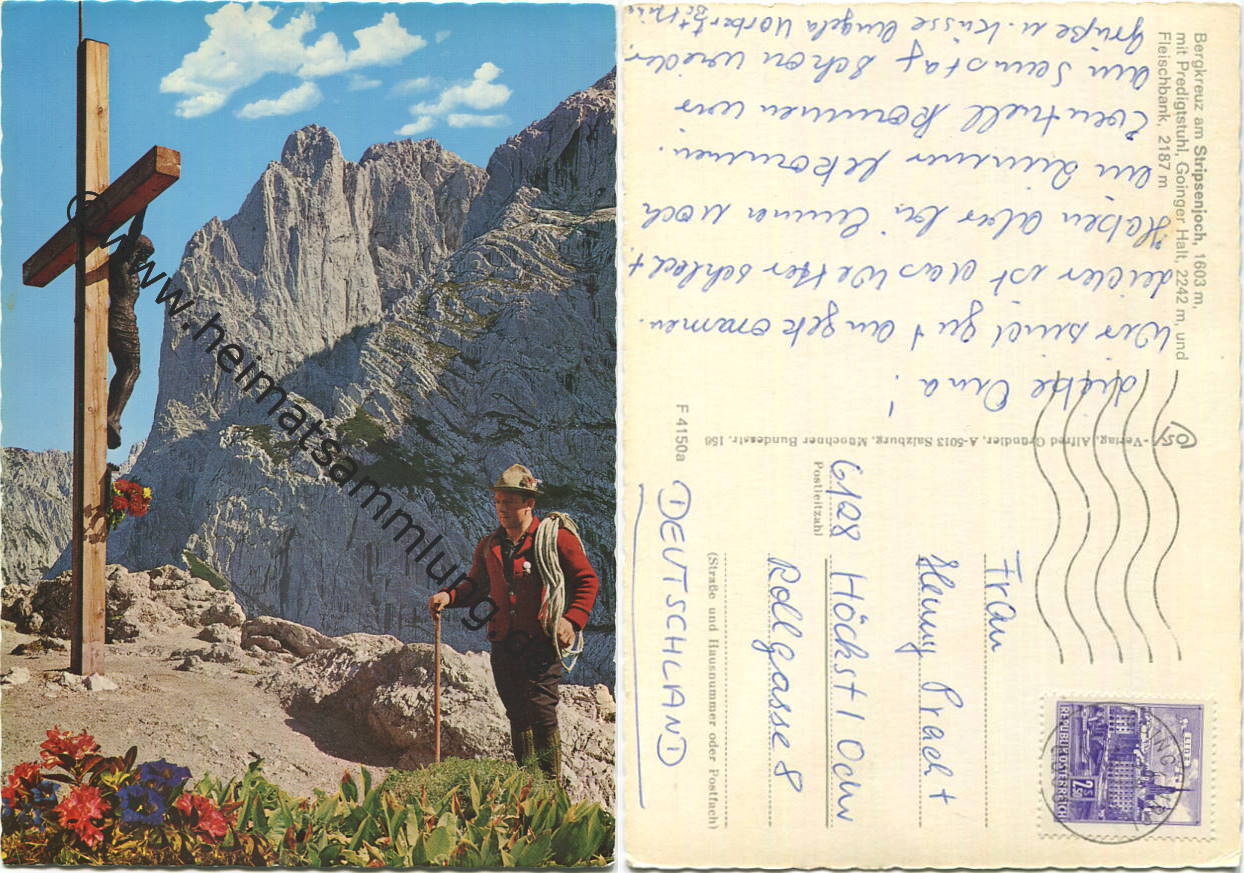 www.heimatsammlung.de
Bergkreuz am Stripsenjoch, 1603 m,
mit Predigtstuhl, Goinger Halt, 2242 m, und
Fleischbank, 2187 m
Liebe Oma!
Wir sind gut angekommen.
Leider ist das Wetter schlecht.
Haben aber bei Emma noch
ein Zimmer bekommen.
Eventuell kommen wir
am Samstag schon wieder.
Grüße u. Küsse Angela Norbert
Verlag, Alfred Gründler, A-5013 Salzburg, Münchner Bundesstr. 156
F 4150a
REPUBLIK ÖSTERREICH
2.S
LINZ
Frau
Henny Pracht
6128 Höchst / Odw
Postleitzahl
Rollgasse 8
(Straße und Hausnummer oder Postfach)
DEUTSCHLAND